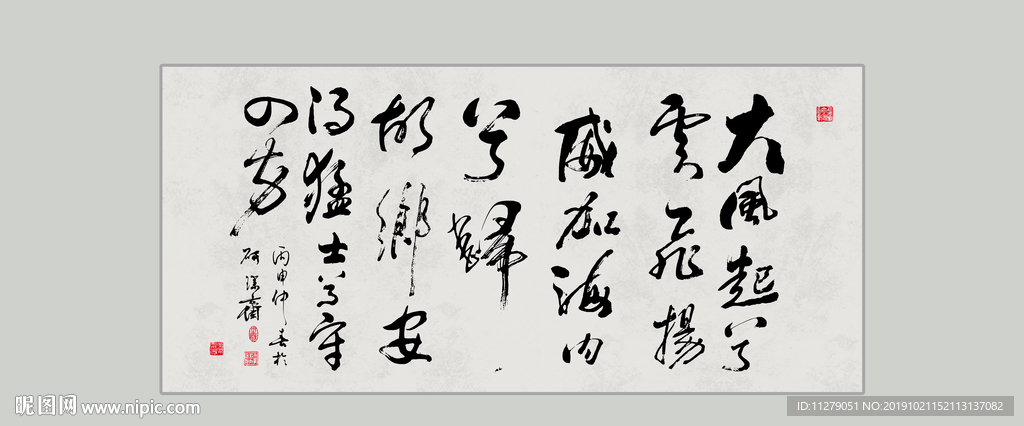 大风起兮
云飞扬
威加海内
兮归
故乡安
得猛士兮守
四方
丙申仲春于
研深斋
昵图网 www.nipic.com
ID:11279051 NO:20191021152113137082